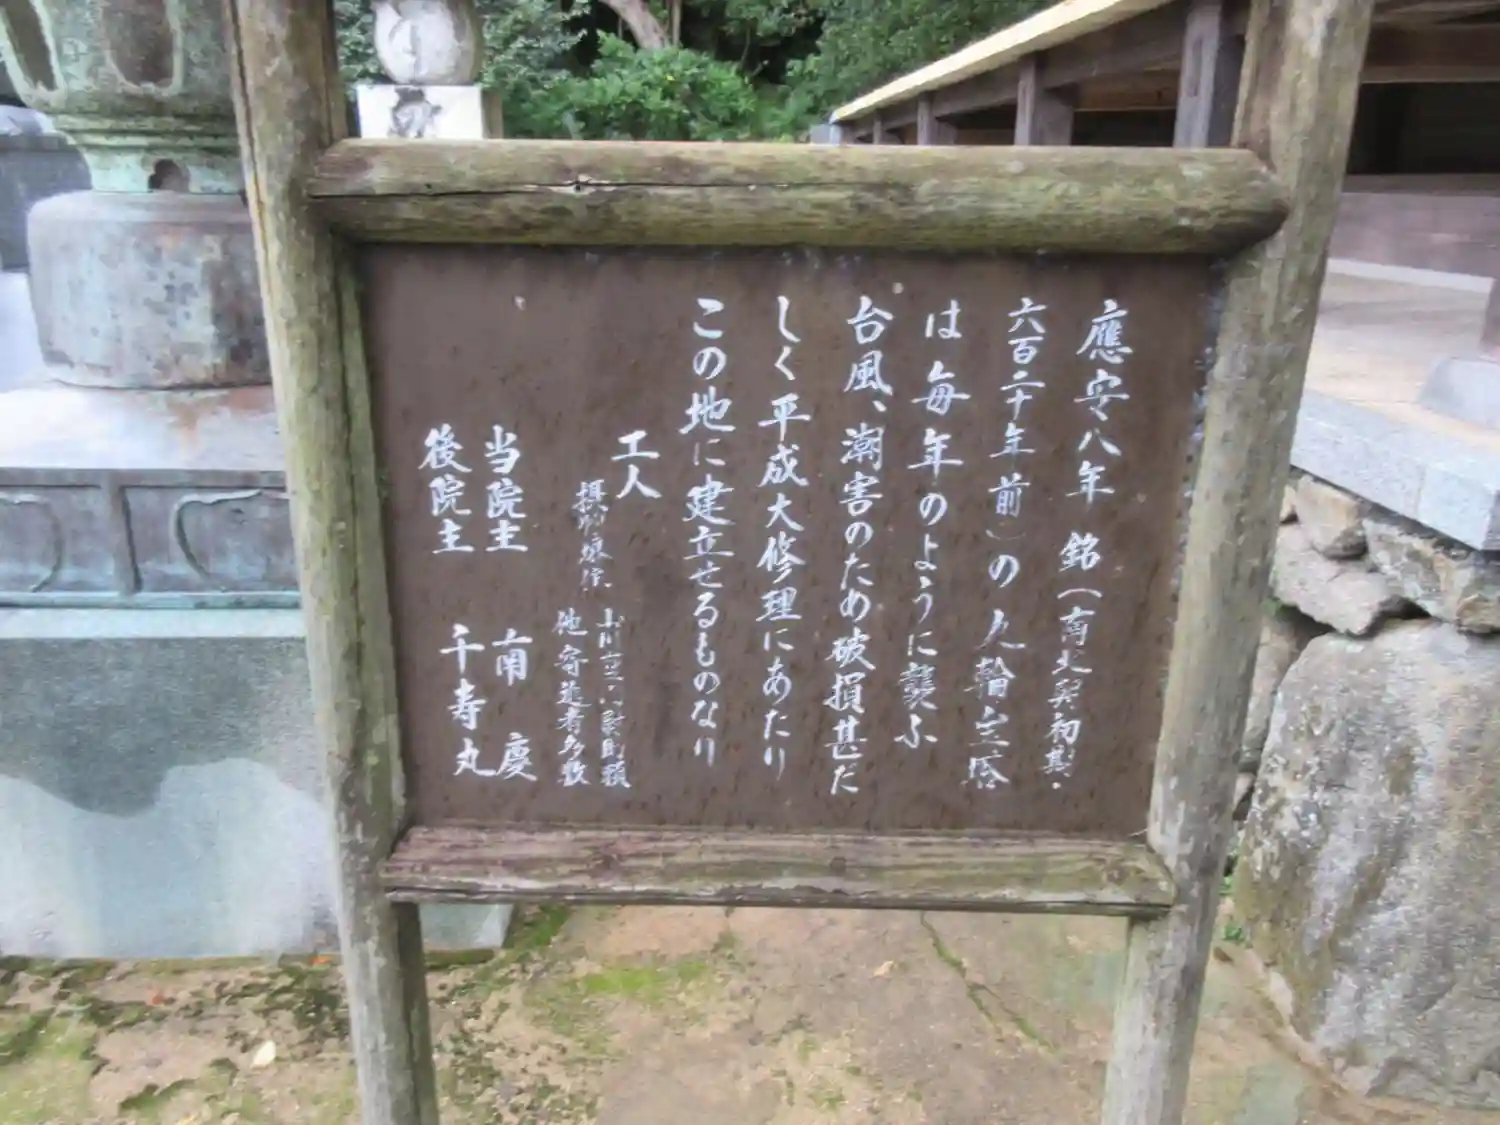 應安八年 銘(南北朝初期・
六百二十年前)の九輪宝塔
は毎年のように襲ふ
台風、潮害のため破損甚だ
しく平成大修理にあたり
この地に建立せるものなり
工人
山川
他寄進者多数
当院主 南慶
後院主 千寿丸